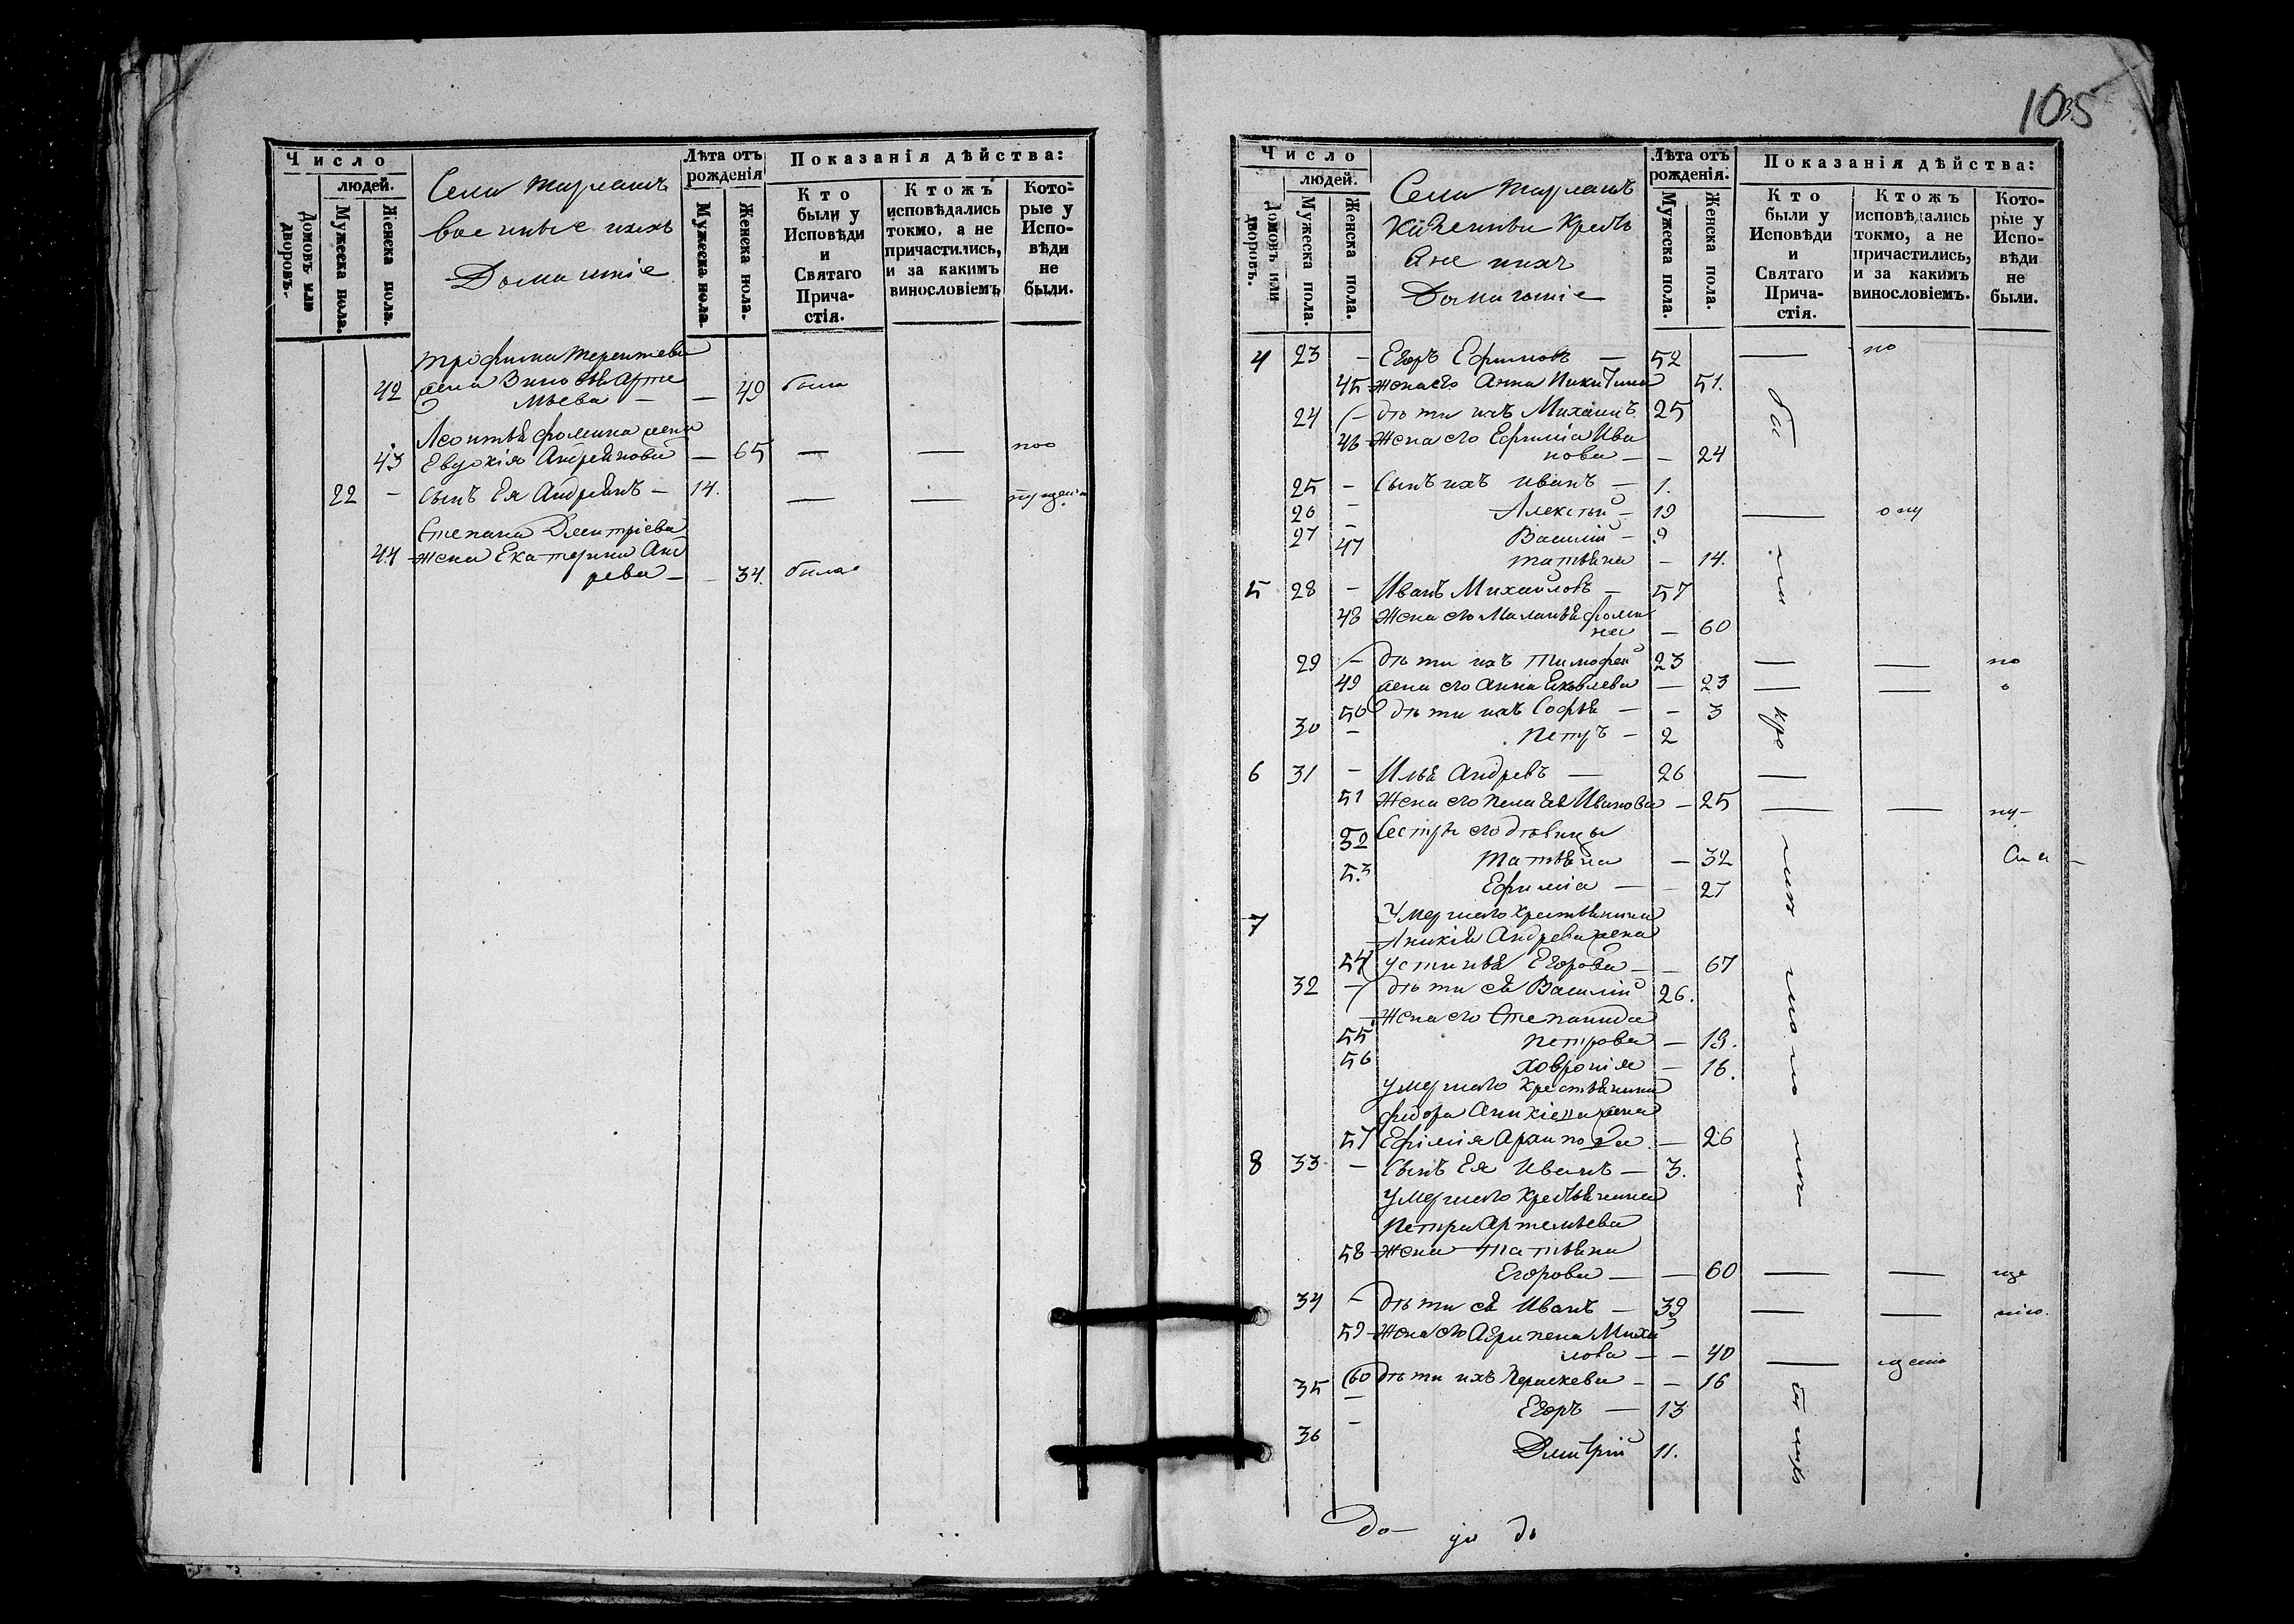 Число
людей.
Домовъ или дворовъ.
Мужеска пола.
Женска пола.
Села
военные ихъ
Домашніе
Лѣта отъ рожденія
Мужеска пола.
Женска пола.
Показанія дѣйства:
Кто были у Исповѣди и Святаго Причастія.
Ктожъ исповѣдались токмо, а не причастились, и за какимъ винословіемъ
Которые у Исповѣди не были.
Трофима Терентева
42 жена Зиновья Арте
мьева — — 49 была
Леонтья Фомина жена
43 Евдокія Андрѣянова — 65 — —
22 – сынъ Ея Андреянъ – 14. — —
Степана Дмитріева
44 жена Екатерина Анд
рева — – 34. была
1035
Число
людей.
Домовъ или дворовъ.
Мужеска пола.
Женска пола.
Села
Казенные Крестьяне
ихъ
Домашніе
Лѣта отъ рожденія.
Мужеска пола.
Женска пола.
Показанія дѣйства:
Кто были у Исповѣди и Святаго Причастія.
Ктожъ исповѣдались токмо, а не причастились, и за какимъ винословіемъ.
Которые у Исповѣди не были.
4 23 – Егоръ Ефимовъ — 52 — по
45 жена его Анна Никитина 51.
24 – дѣти ихъ Михаилъ 25
46 Жена его Ефимія Ива
нова — – 24
25 – Сынъ ихъ Иванъ — 1.
26 – Алексѣй — 19 —
27 Василій – 9
47 татьяна – 14.
5 28 – Иванъ Михайловъ — 57
48 Жена его Маланья Фоми
на — 60
29 – дѣти ихъ Тимофей 23 — — по
49 жена его Анна Яковлева — 23 — —
50 дѣти ихъ Софья — – 3
30 – Петръ – 2
6 31 – Илья Андревъ — 26 —
51 Жена его Пелагея Иванова – 25 — —
52 Сестры его дѣвицы
Татьяна — 32
53 Ефимія — – 27
7 Умершаго Крестьянина
Аникія Андрева жена
54 Устинья Егорова — – 67
32 – дѣти ея Василій 26.
Жена его Степанида
55 Петрова — 19.
56 Ховронія — 16.
Умершаго Крестьянина
Федора Аникіева жена
57 Ефимія Архипова — 26
8 33 – Сынъ Ея Иванъ — 3.
Умершаго Крестьянина
Петра Артемьева
58 Жена Татьяна
Егорова — — 60 — —
34 – дѣти ея Иванъ — 39 — —
59 Жена его Агрипена Михай
лова — – 40 —
60 дѣти ихъ Параскева – – 16
35 – Егоръ — 13
36 – Дмитрій 11.